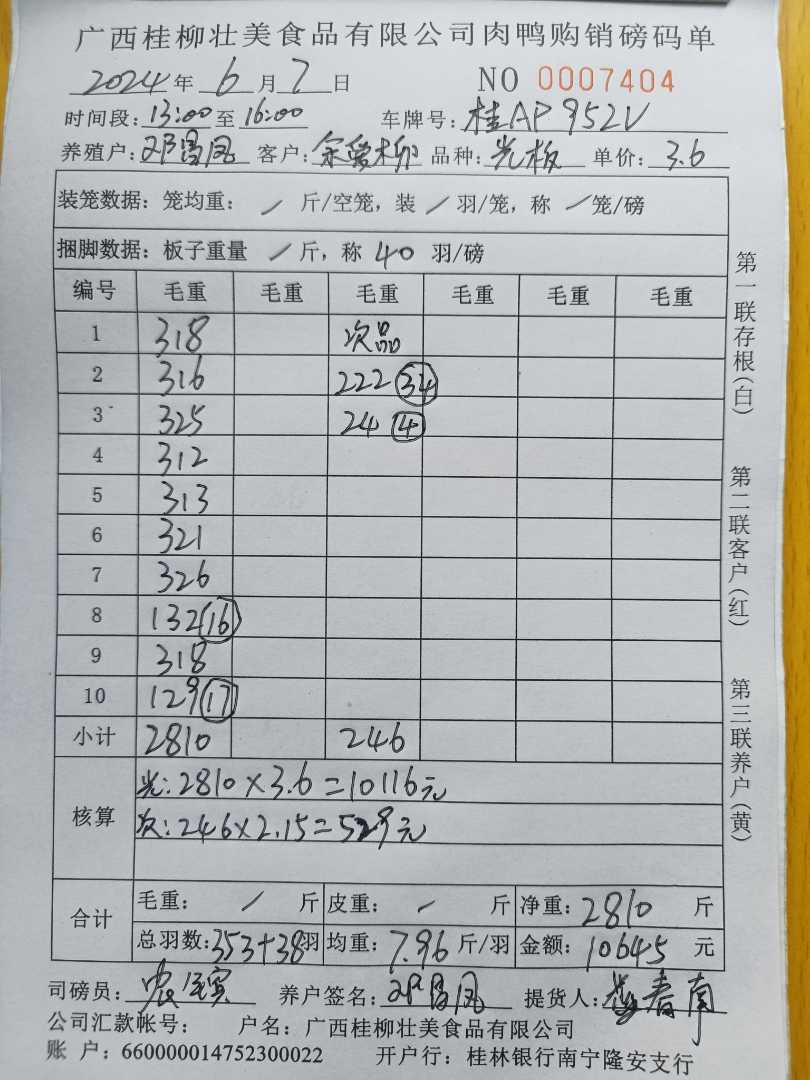 广西桂柳壮美食品有限公司肉鸭购销磅码单
2024年 6 月 7 日 NO 0007404
时间段: 13:00 至 16:00 车牌号: 桂AP952V
养殖户: 邓昌凤 客户: 余爱柳 品种: 光板 单价: 3.6
装笼数据: 笼均重: / 斤/空笼, 装 / 羽/笼, 称 / 笼/磅
捆脚数据: 板子重量 / 斤, 称 40 羽/磅
编号 毛重 毛重 毛重 毛重 毛重 毛重
1 318 次品
2 316 222 34
3 325 24 4
4 312
5 313
6 321
7 326
8 132 16
9 318
10 129 17
小计 2810 246
核算
光: 2810×3.6=10116元
次: 246×2.15=529元
合计
毛重: / 斤 皮重: / 斤 净重: 2810 斤
总羽数: 353+38羽 均重: 7.96 斤/羽 金额: 10645 元
司磅员: 养户签名: 邓昌凤 提货人: 春南
公司汇款帐号: 户名: 广西桂柳壮美食品有限公司
账 户: 660000014752300022 开户行: 桂林银行南宁隆安支行
第一联存根(白)
第二联客户(红)
第三联养户(黄)